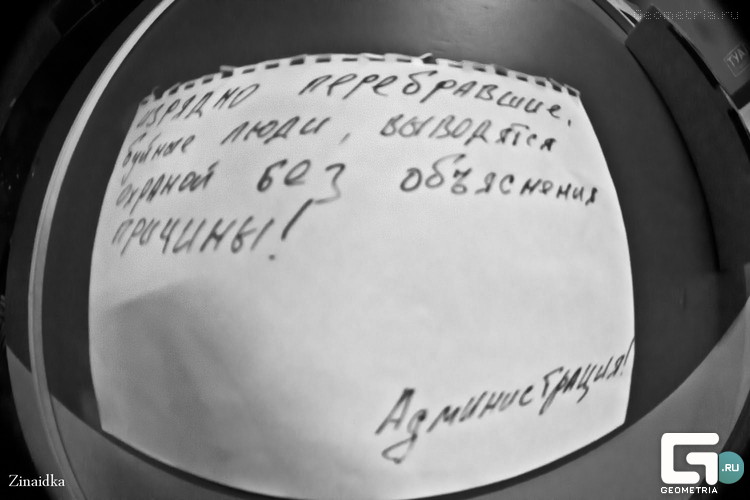 Geometria.ru
изрядно перебравшие,
буйные люди, выводятся
охраной без объяснения
причины!
Администрация!
Zinaidka
G
.RU
GEOMETRIA